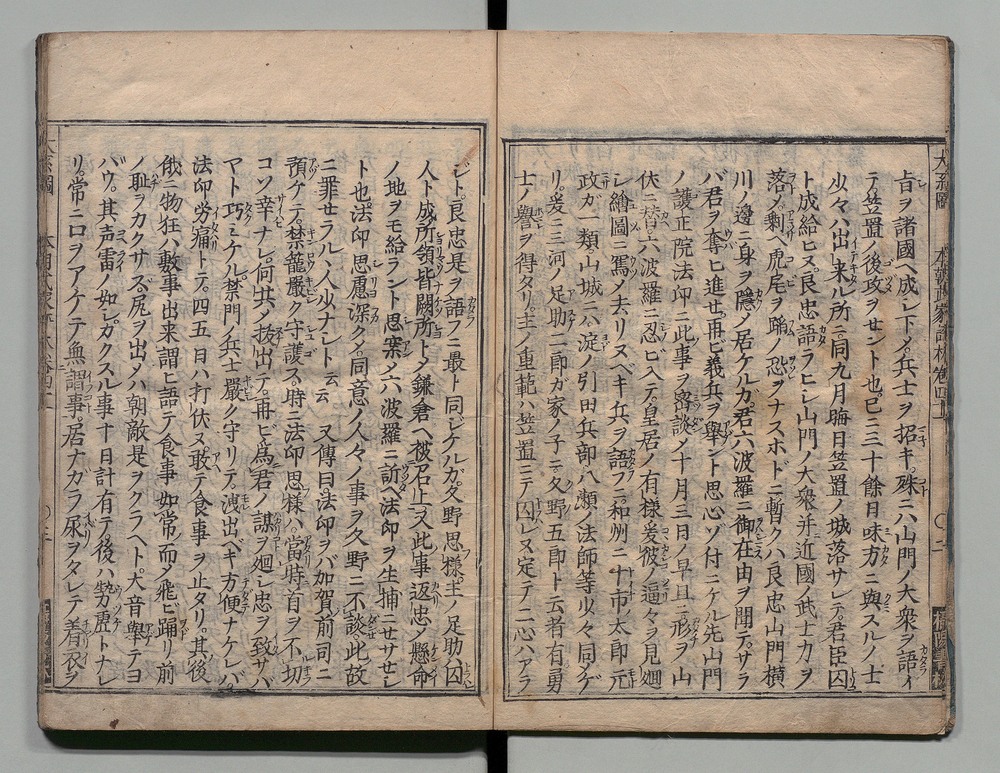 旨ヲ諸國ヘ成シ下メ兵士ヲ招キ殊ニハ山門ノ大衆ヲ語イ
テ笠置ノ後攻ヲセント也已ニ三十餘日味方ニ與スルノ士
少々ハ出来ル所ニ同九月晦日笠置ノ城落サレテ君臣囚
ト成給ヒヌ良忠語ラヒシ山門ノ大衆并近國ノ武士力ヲ
落メ剰ヘ虎尾ヲ踊ノ恐ヲナスホドニ暫クハ良忠山門横
川ノ邊ニ身ヲ隠ノ居ケルガ君六波羅ニ御在由ヲ聞テサラ
バ君ヲ奪ヒ進セ再ビ義兵ヲ舉ント思心ゾ付ニケル先山門
ノ護正院法印ニ此事ヲ密談メ十月三日ノ早旦ニ形ヲ山
伏ニ替六波羅ニ忍ビ入テ皇居ノ有様爰彼ノ逼々ヲ見廻
シ繪圖ニ寫メ去リヌベキ兵ヲ語フニ和州ニ十市太郎元
政ガ一類山城ニハ淀ノ引田兵部八瀬ノ法師等少々同ゲ
リ爰ニ三河ノ足助二郎ガ家ノ子ニ久野五郎ト云者有勇
士ノ譽ヲ得タリ主ノ重範ハ笠置ニテ囚レヌ定テ二心ハアラ
ント良忠是ヲ語フニ最ト同ジケルガ久野思様主ノ足助囚
人ト成所領皆闕所トメ鎌倉ヘ被召上又此事返忠ノ懸命
ノ地ヲモ給ラント思案メ六波羅ニ訴ヘ法印ヲ生捕ニサセセシ
ト也法印思慮深クメ同意ノ人々ノ事ヲ久野ニ不談此故
ニ罪セラルヽ人少ナシト云云又傳曰法印ヲバ加賀前司ニ
預ケテ禁籠嚴ク守護ス時ニ法印思様ハ當時首ヲ不切
コソ幸ナレ何共メ拔出テ再ビ爲君ノ謀ヲ廻シ忠ヲ致サバ
マト巧ミケル禁門ノ兵士嚴ク守リテ洩出ベキ方便ナケレバ
法印労痛トテ四五日ハ打伏ヌ敢テ食事ヲ止タリ其後
俄ニ物狂ハ敷事出来謂ヒ語テ食事如常而メ飛ビ踊リ前
ノ耻ヲカクサズ尻ヲ出メハ朝敵是ヲクラヘト大音舉テヨ
バウ其声雷ノ如シカクスル事十日計有テ後ハ勢虚トナレ
リ常ニ口ヲアケテ無謂事居ナガラ尿ヲタレテ着衣ヲ